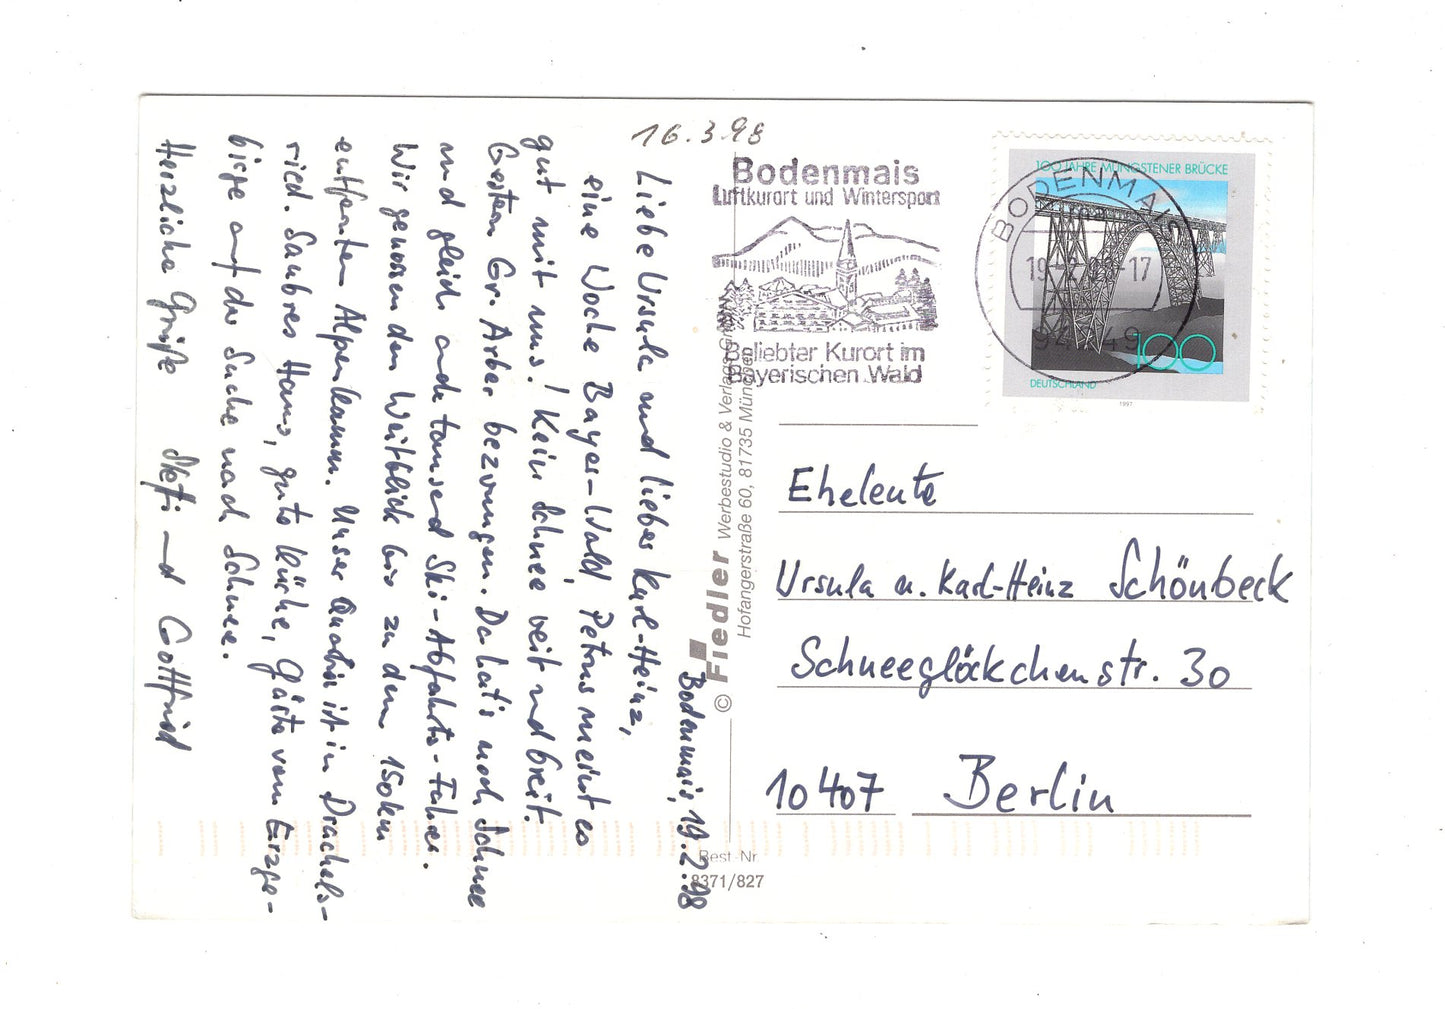 16.3.98
Bodenmais, 19.2.98
Liebe Ursula und lieber Karl-Heinz,
eine Woche Bayer-Wald, Petrus meint es
gut mit uns! Kein Schnee weit und breit.
Gestern Gr. Arber bezwungen. Da hat's noch Schnee
und gleich auch tausend Ski-Abfahrts-Fahrer.
Wir genossen den Weitblick bis zu dem 150km
entfernten Alpenkamm. Unser Quartier ist in Drachels-
ried. Saubres Haus, gute Küche, Gäste vom Erzge-
birge auf der Suche nach Schnee.
Herzliche Grüße Steffi und Gottfried
Bodenmais
Luftkurort und Wintersport
Beliebter Kurort im
Bayerischen Wald
BODENMAIS
19.-2.98-17
94249
100 JAHRE MÜNGSTENER BRÜCKE
100
DEUTSCHLAND
1997
© Fiedler Werbestudio & Verlags-GmbH
Hofangerstraße 60, 81735 München
Best-Nr
8371/827
Eheleute
Ursula u. Karl-Heinz Schönbeck
Schneeglöckchenstr. 30
10407 Berlin